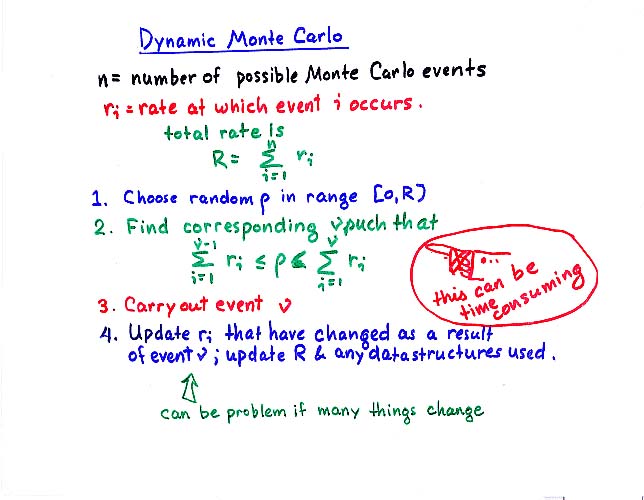 Dynamic Monte Carlo
n = number of possible Monte Carlo events
rᵢ = rate at which event i occurs.
total rate is
R = Σⁿᵢ₌₁ rᵢ
1. Choose random ρ in range [0,R)
2. Find corresponding ν such that
Σ^(ν-1)ᵢ₌₁ rᵢ ≤ ρ < Σ^νᵢ₌₁ rᵢ
this can be
time consuming
3. Carry out event ν
4. Update rᵢ that have changed as a result
of event ν; update R & any data structures used.
can be problem if many things change